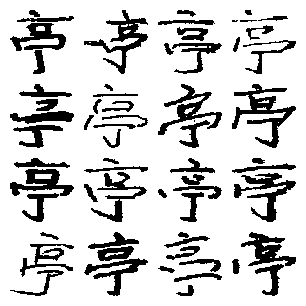 亭亭亭亭
亭亭亭亭
亭亭亭亭
亭亭亭亭